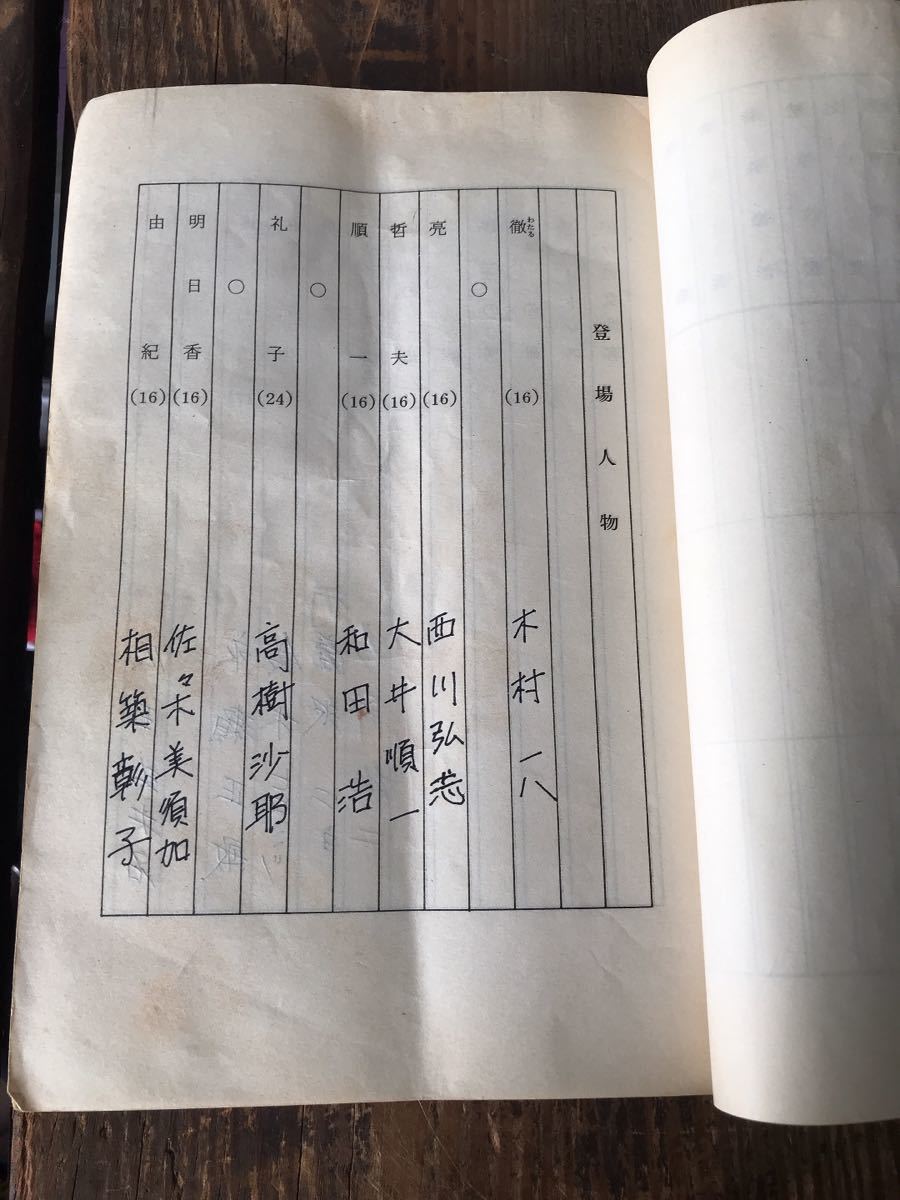 登場人物
徹わたる(16) 木村一八
○
亮(16) 西川弘志
哲夫(16) 大井順一
順一(16) 和田浩
○
礼子(24) 高樹沙耶
○
明日香(16) 佐々木美須加
由紀(16) 相築彰子